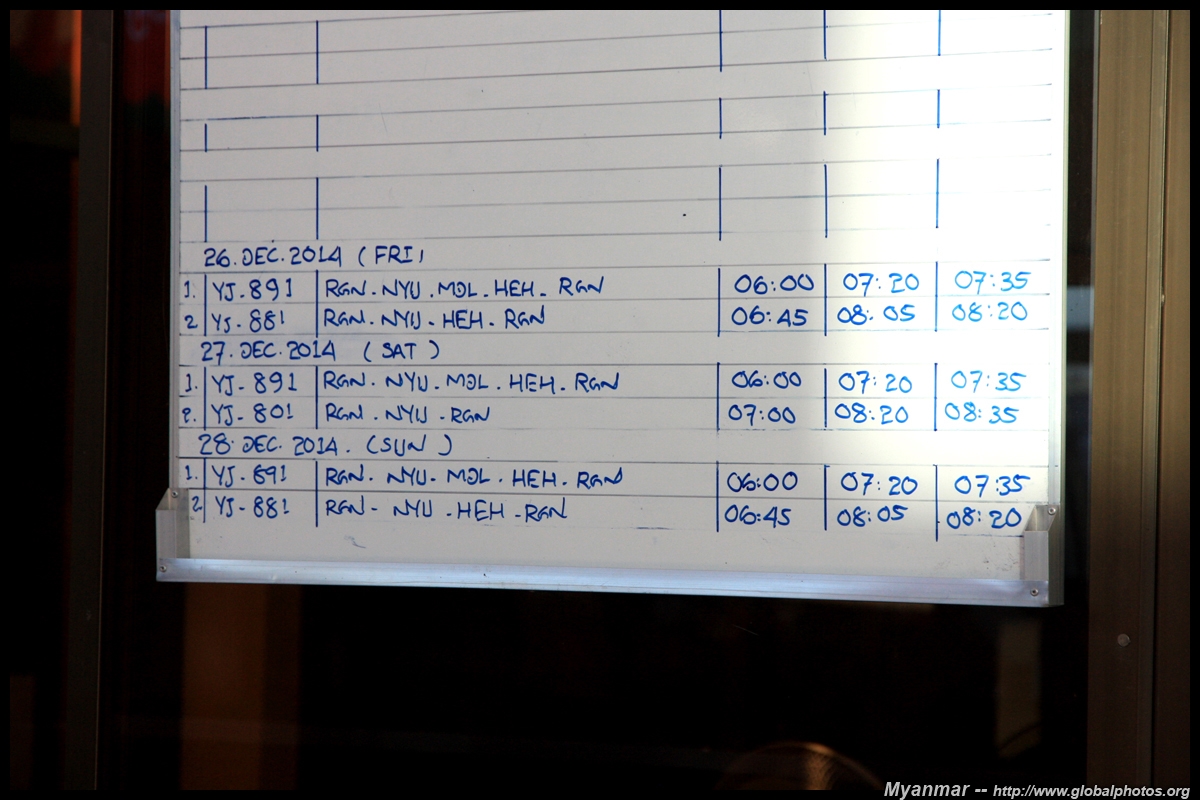 26.DEC.2014 (FRI)
1. YJ-891 RGN-NYU.MDL.HEH-RGN 06:00 07:20 07:35
2 YJ-881 RGN.NYU-HEH.RGN 06:45 08:05 08:20
27.DEC.2014 (SAT)
1. YJ-891 RGN.NYU.MDL.HEH.RGN 06:00 07:20 07:35
2. YJ-801 RGN.NYU-RGN 07:00 08:20 08:35
28.DEC.2014. (SUN)
1. YJ-891 RGN.NYU.MDL.HEH.RGN 06:00 07:20 07:35
2 YJ-881 RGN-NYU-HEH-RGN 06:45 08:05 08:20
Myanmar -- http://www.globalphotos.org